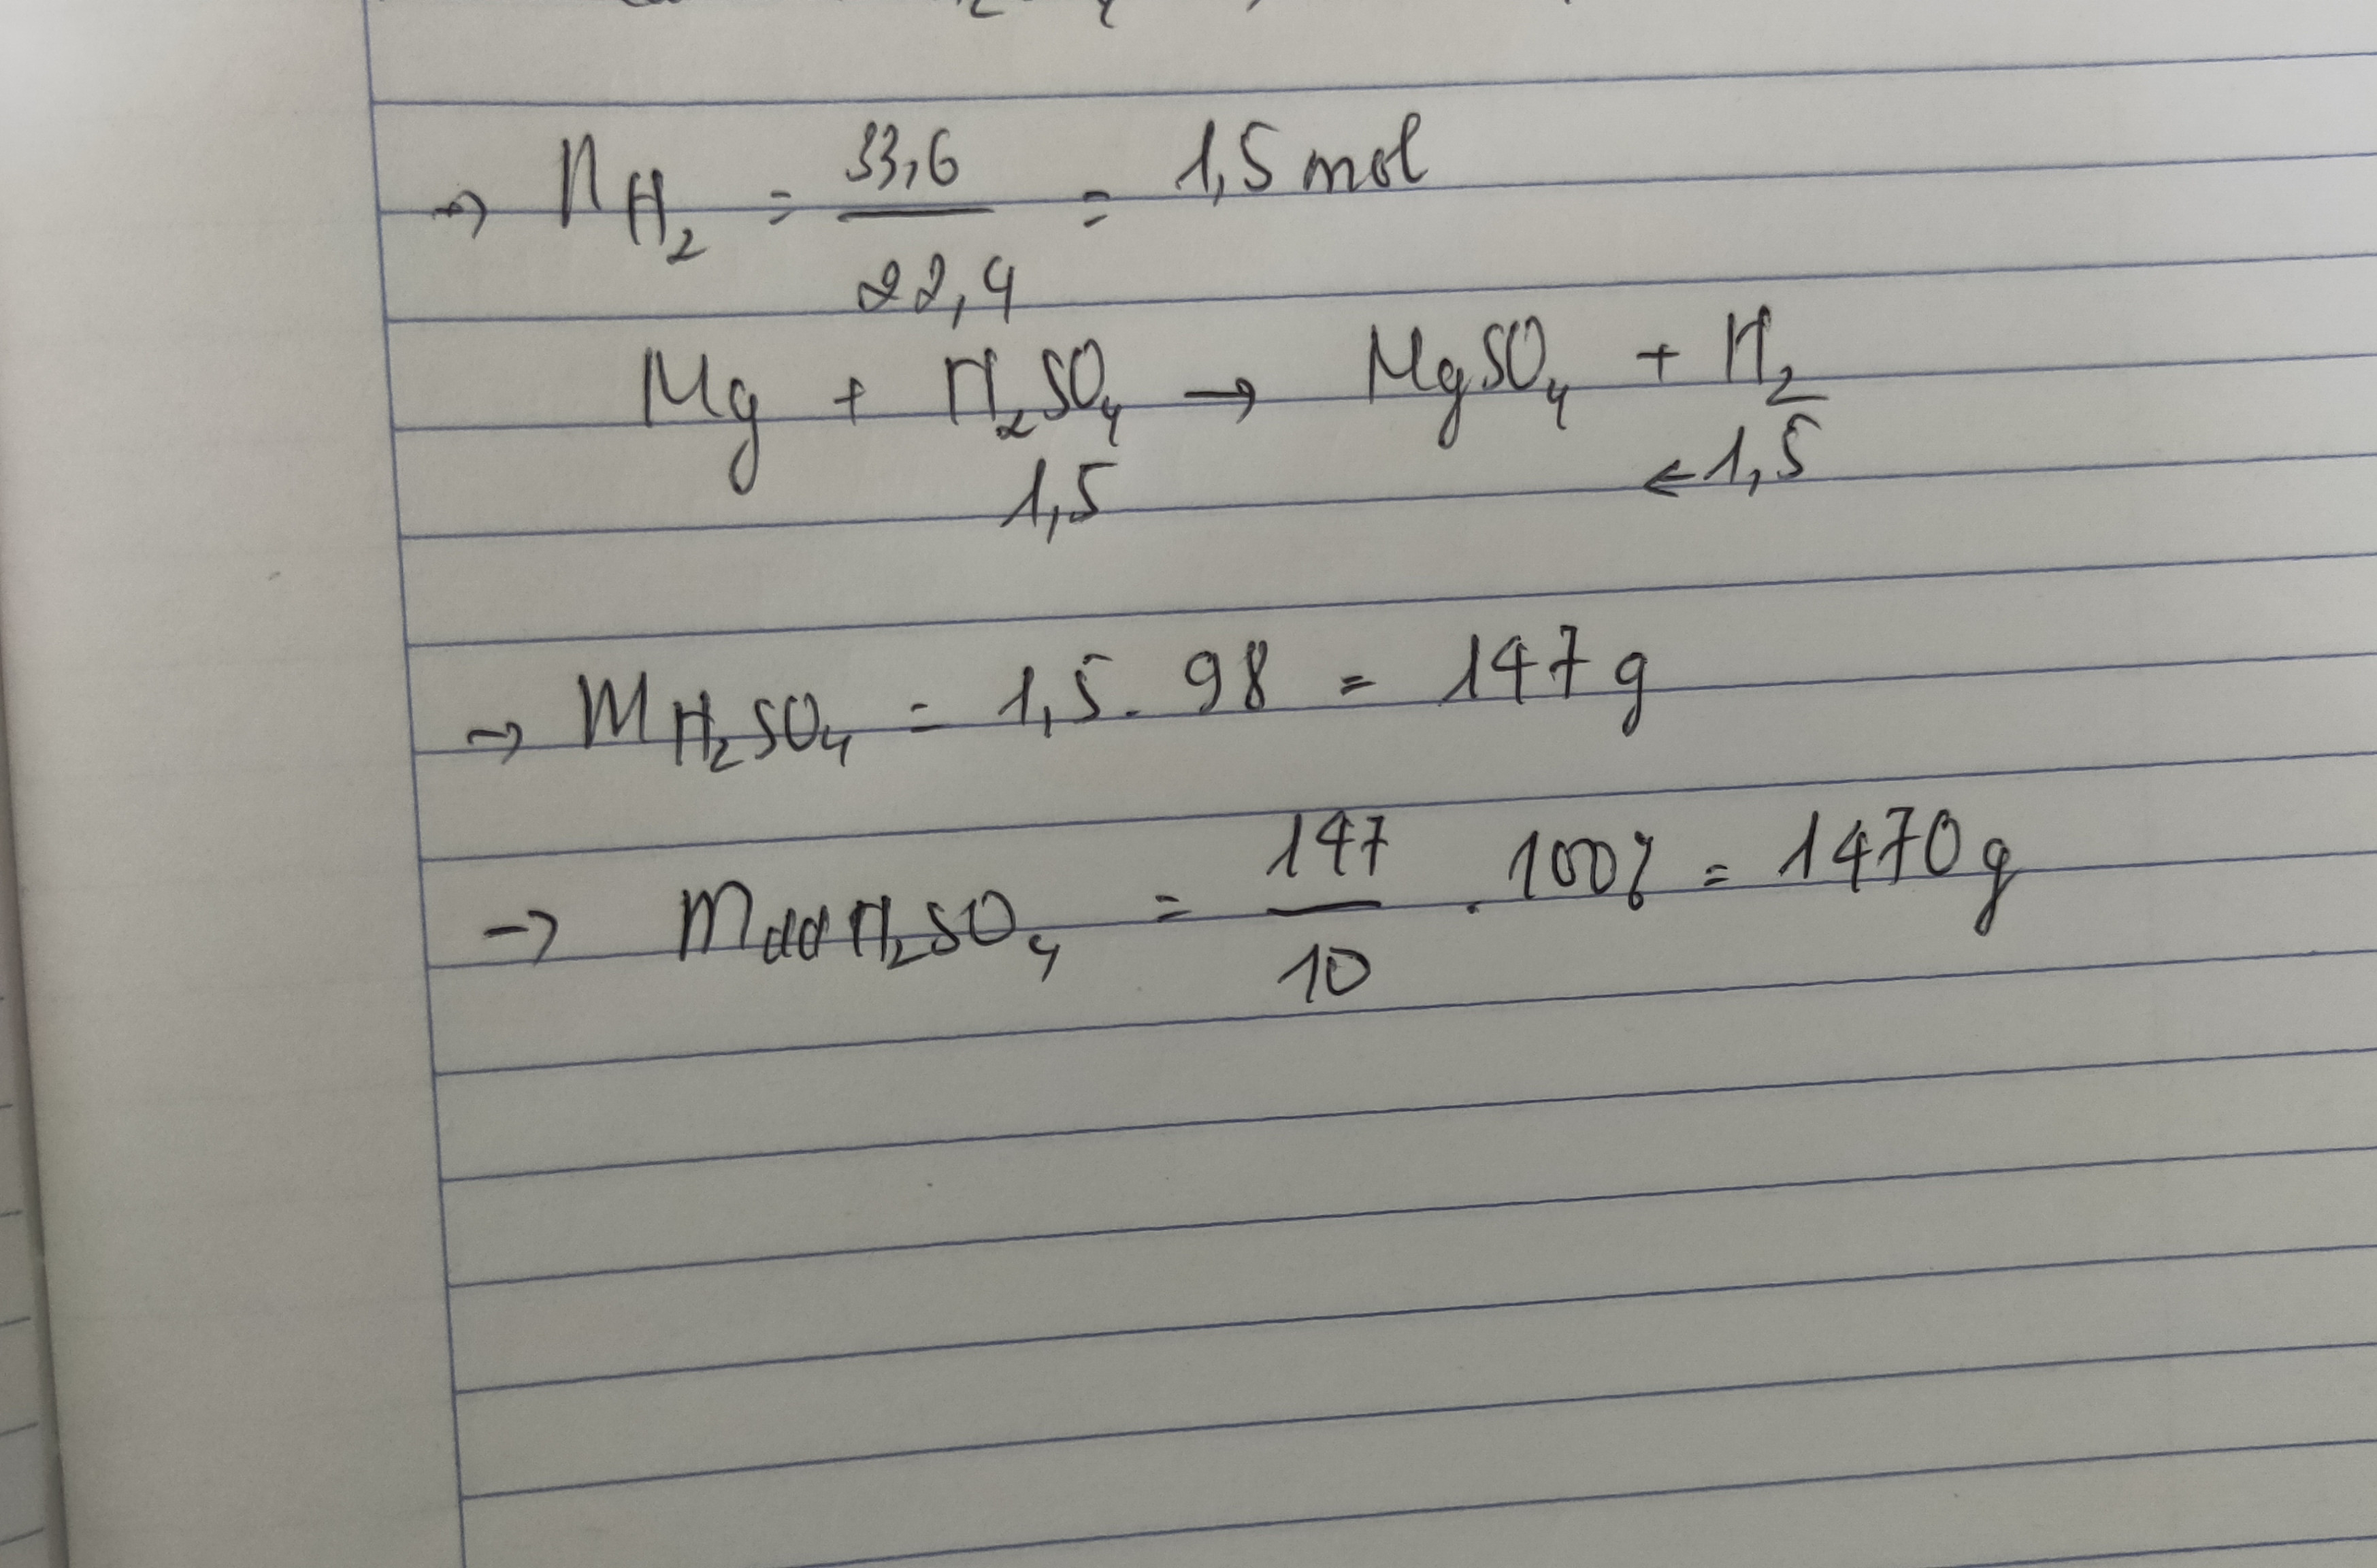 → nH₂ = 33,6 / 22,4 = 1,5 mol
Mg + H₂SO₄ → MgSO₄ + H₂
1,5 ← 1,5
→ mH₂SO₄ = 1,5 . 98 = 147 g
→ mddH₂SO₄ = 147 / 10 . 100% = 1470 g